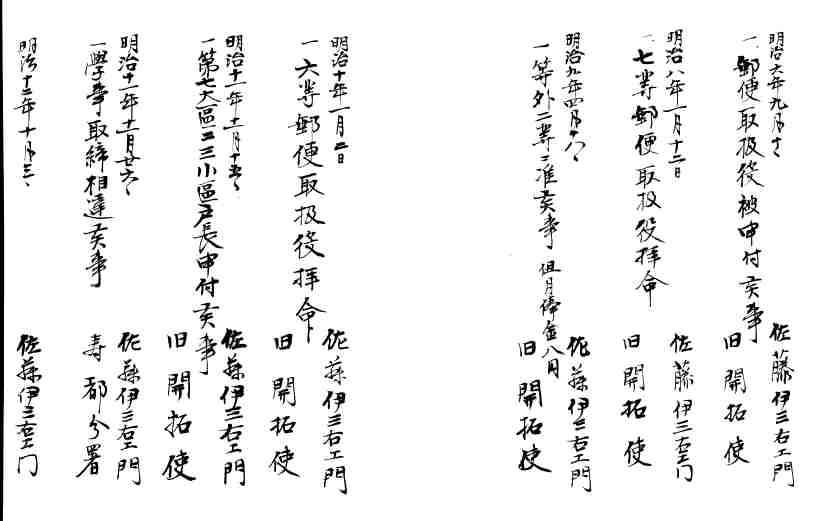 明治六年九月十日
一、郵便取扱役被申付候事
佐藤伊三右エ門
旧開拓使
明治八年一月十二日
一、七等郵便取扱役拝命
佐藤伊三右エ門
旧開拓使
明治九年四月十八日
一等外二等ニ准候事 但月俸金八円
佐藤伊三右エ門
旧開拓使
明治十年一月二日
一六等郵便取扱役拝命
佐藤伊三右エ門
旧開拓使
明治十一年十一月十五日
一第七大區二三小區戸長申付候事
佐藤伊三右エ門
旧開拓使
明治十一年十二月廿六日
一學事取締相達候事
佐藤伊三右エ門
寿都分署
明治十二年十月三日
佐藤伊三右エ門